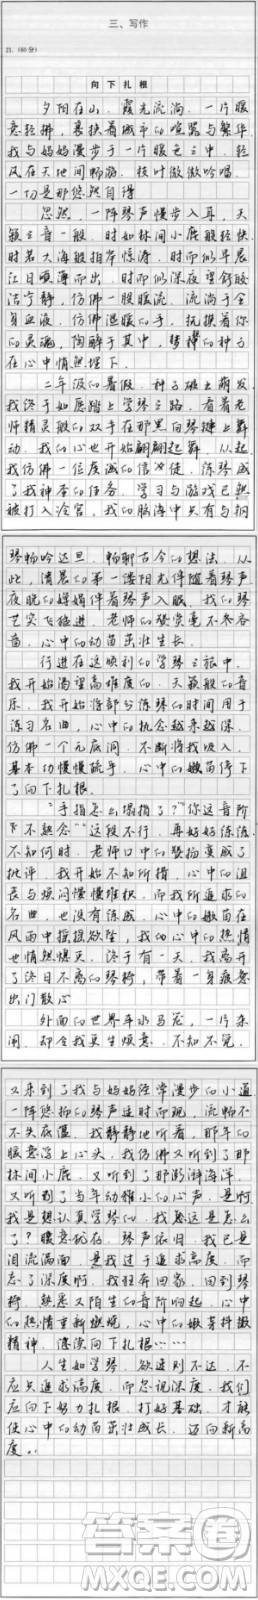 三、写作
21.（60分）
向下扎根
夕阳在山，霞光流淌，一片暖
意轻拂，裹挟着城市的喧嚣与繁华，
我与妈妈漫步于一片暖色之中，轻
风在天地间畅游，枝叶微微吟唱，
一切是那般悠然自得。
忽然，一阵琴声慢步入耳，天
籁之音一般，时如林间小鹿般轻快，
时若大海般指挥惊涛，时而似早晨
江日喷薄而出，时而似深夜星辉般
洁宁静，仿佛一股暖流，流淌于全
身血液，仿佛温暖的手，抚摸着你
的灵魂，陶醉于其中，梦的种子
在心中悄然埋下。
二年级的暑假，种子破土萌发，
我终于如愿踏上学琴之路，看着老
师精灵般的双手在那黑白琴键上舞
动，我的心也开始翩翩起舞，从此
我仿佛一位虔诚的信徒，练琴成
了我神圣的任务，学习与游戏已然
被打入冷宫，我的脑海中只有与钢
琴畅吟达旦，畅聊古今的想法。从
此，清晨的第一缕阳光伴随着琴声，
夜晚的蝉鸣伴着琴声入眠，我的琴
艺突飞猛进，老师的赞赏毫不吝
啬，心中的幼苗茁壮生长。
行进在这顺利的学琴之旅中，
我开始渴望高难度的、天籁般的音
乐，我开始将部分练琴的时间用于
练习名曲，心中的执念越来越深，
仿佛一个无底洞，不断将我吸入，
基本功慢慢疏乎，心中的嫩苗停下
了向下扎根。
“手指怎么塌指了？”“你这音阶
下不熟念”“这段不行，再好好练练”
不知何时，老师口中的赞扬变成了
批评，我开始不知所措，心中的沮
丧与烦闷慢慢堆积，而我所追求的
名曲，也没有练成，心中的嫩苗在
风雨中摇摇欲坠，我的心中的热情
也悄然熄灭，终于有一天，我离开
了终日不离的琴椅，带着一身疲惫
出门散心。
外面的世界车水马龙，一片杂
闹，却令我更生烦意，不知不觉，
又来到了我与妈妈经常漫步的小道，
一阵悠扬的琴声适时而现，流畅不
不失底蕴，我静静地听着，那年的
暖意涌上心头，我仿佛又听到了那
林间小鹿，又听到了那澎湃海洋，
又听到了当年幼稚小的心声。是啊，
我是想认真学琴的，我怎这是怎么
了？暖意犹在，琴声依旧，我已是
泪流满面，是我过于追求高度，而
忘了深度啊，我狂奔回家，回到琴
椅，熟悉又陌生的音阶响起，心中
的热情重新燃烧，心中的嫩芽抖擞
精神，继续向下扎根……
人生如学琴，欲速则不达，不
应只追求高度，而忽视深度，我们
应向下努力扎根，打好基础，才能
使心中的幼苗茁壮成长，迈向新高
度。
答案圈